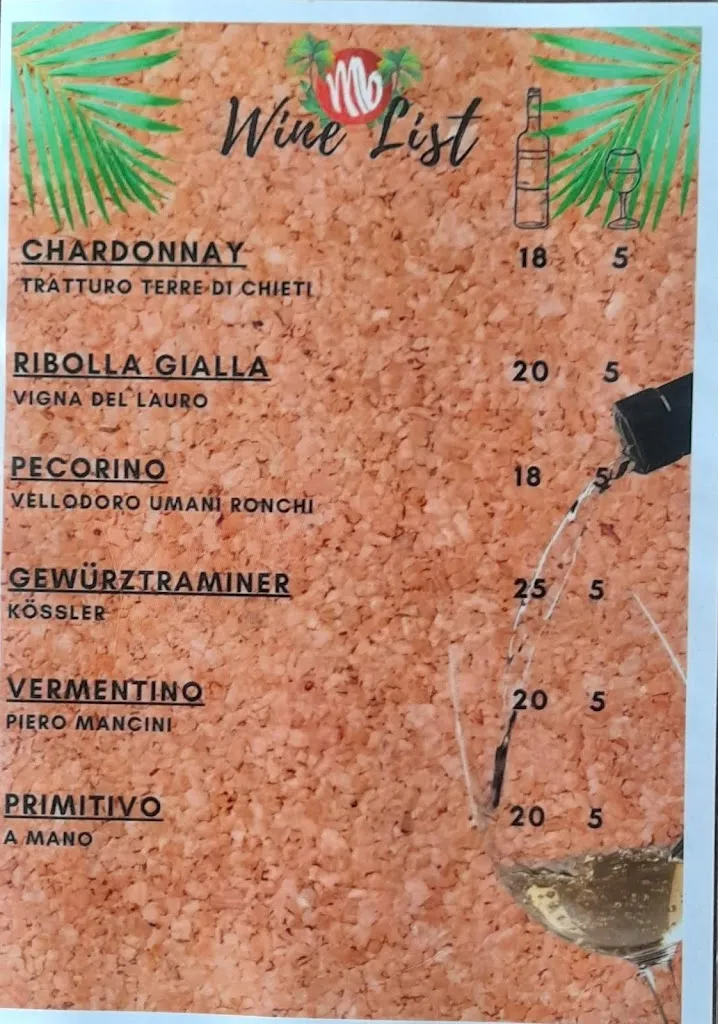 Mb
Wine List
CHARDONNAY 18 5
TRATTURO TERRE DI CHIETI
RIBOLLA GIALLA 20 5
VIGNA DEL LAURO
PECORINO 18 5
VELLODORO UMANI RONCHI
GEWÜRZTRAMINER 25 5
KÖSSLER
VERMENTINO 20 5
PIERO MANCINI
PRIMITIVO 20 5
A MANO